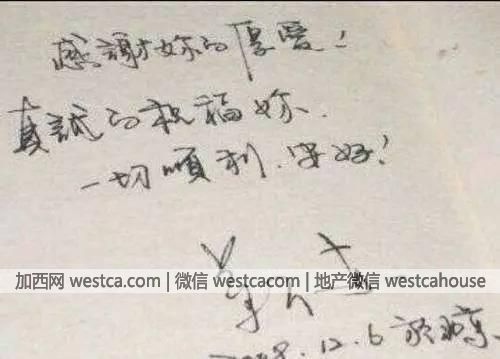 感謝妳的厚愛！
真誠的祝福妳.
一切順利.安好!
加西网 westca.com | 微信 westcacom | 地产微信 westcahouse
12.6 於